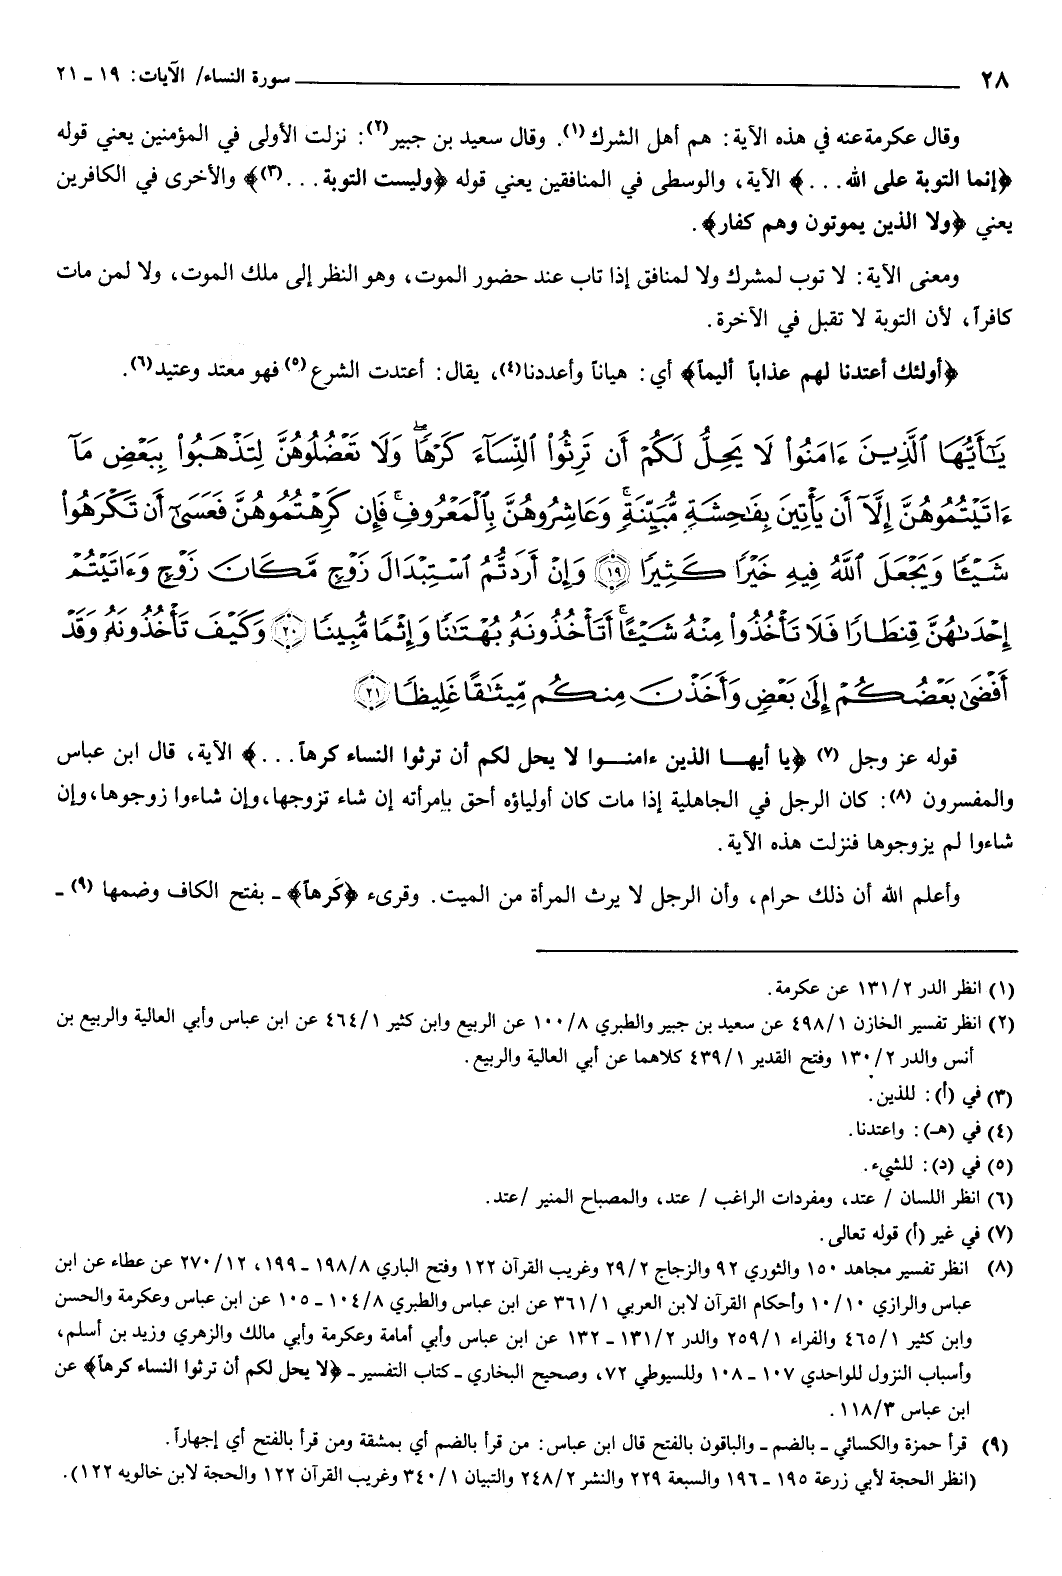 ٢٨ سورة النساء/ الآيات: ١٩ ـ ٢١
وقال عكرمة عنه في هذه الآية: هم أهل الشرك(١). وقال سعيد بن جبير(٢): نزلت الأولى في المؤمنين يعني قوله
﴿إنما التوبة على الله. . .﴾ الآية، والوسطى في المنافقين يعني قوله ﴿وليست التوبة. . .(٣)﴾ والأخرى في الكافرين
يعني ﴿ولا الذين يموتون وهم كفار﴾.
ومعنى الآية: لا توب لمشرك ولا لمنافق إذا تاب عند حضور الموت، وهو النظر إلى ملك الموت، ولا لمن مات
كافراً، لأن التوبة لا تقبل في الآخرة.
﴿أولئك أعتدنا لهم عذاباً أليماً﴾ أي: هيأنا وأعددنا(٤)، يقال: أعتدت الشرع(٥) فهو معتد وعتيد(٦).
يَٰٓأَيُّهَا ٱلَّذِينَ ءَامَنُوا۟ لَا يَحِلُّ لَكُمْ أَن تَرِثُوا۟ ٱلنِّسَآءَ كَرْهًۭا ۖ وَلَا تَعْضُلُوهُنَّ لِتَذْهَبُوا۟ بِبَعْضِ مَآ
ءَاتَيْتُمُوهُنَّ إِلَّآ أَن يَأْتِينَ بِفَٰحِشَةٍۢ مُّبَيِّنَةٍۢ ۚ وَعَاشِرُوهُنَّ بِٱلْمَعْرُوفِ ۚ فَإِن كَرِهْتُمُوهُنَّ فَعَسَىٰٓ أَن تَكْرَهُوا۟
شَيْـًۭٔا وَيَجْعَلَ ٱللَّهُ فِيهِ خَيْرًۭا كَثِيرًۭا ١٩ وَإِنْ أَرَدتُّمُ ٱسْتِبْدَالَ زَوْجٍۢ مَّكَانَ زَوْجٍۢ وَءَاتَيْتُمْ
إِحْدَىٰهُنَّ قِنطَارًۭا فَلَا تَأْخُذُوا۟ مِنْهُ شَيْـًٔا ۚ أَتَأْخُذُونَهُۥ بُهْتَٰنًۭا وَإِثْمًۭا مُّبِينًۭا ٢٠ وَكَيْفَ تَأْخُذُونَهُۥ وَقَدْ
أَفْضَىٰ بَعْضُكُمْ إِلَىٰ بَعْضٍۢ وَأَخَذْنَ مِنكُم مِّيثَٰقًا غَلِيظًۭا ٢١
قوله عز وجل (٧) ﴿يا أيهـــا الذين ءامنـــوا لا يحل لكم أن ترثوا النساء كرهاً. . .﴾ الآية، قال ابن عباس
والمفسرون (٨): كان الرجل في الجاهلية إذا مات كان أولياؤه أحق بإمرأته إن شاء تزوجها، وإن شاءوا زوجوها، وإن
شاءوا لم يزوجوها فنزلت هذه الآية.
وأعلم الله أن ذلك حرام، وأن الرجل لا يرث المرأة من الميت. وقرىء ﴿كَرهاً﴾ ـ بفتح الكاف وضمها (٩) ـ
(١) انظر الدر ٢/ ١٣١ عن عكرمة.
(٢) انظر تفسير الخازن ١/ ٤٩٨ عن سعيد بن جبير والطبري ٨/ ١٠٠ عن الربيع وابن كثير ١/ ٤٦٤ عن ابن عباس وأبي العالية والربيع بن
أنس والدر ٢/ ١٣٠ وفتح القدير ١/ ٤٣٩ كلاهما عن أبي العالية والربيع.
(٣) في (أ): للذين.
(٤) في (هـ): واعتدنا.
(٥) في (د): للشيء.
(٦) انظر اللسان / عتد، ومفردات الراغب / عتد، والمصباح المنير /عتد.
(٧) في غير (أ) قوله تعالى.
(٨) انظر تفسير مجاهد ١٥٠ والثوري ٩٢ والزجاج ٢/ ٢٩ وغريب القرآن ١٢٢ وفتح الباري ٨/ ١٩٨ ـ ١٩٩، ١٢/ ٢٧٠ عن عطاء عن ابن
عباس والرازي ١٠/ ١٠ وأحكام القرآن لابن العربي ١/ ٣٦١ عن ابن عباس والطبري ٨/ ١٠٤ ـ ١٠٥ عن ابن عباس وعكرمة والحسن
وابن كثير ١/ ٤٦٥ والفراء ١/ ٢٥٩ والدر ٢/ ١٣١ ـ ١٣٢ عن ابن عباس وأبي أمامة وعكرمة وأبي مالك والزهري وزيد بن أسلم،
وأسباب النزول للواحدي ١٠٧ ـ ١٠٨ وللسيوطي ٧٢، وصحيح البخاري ـ كتاب التفسير ـ ﴿لا يحل لكم أن ترثوا النساء كرهاً﴾ عن
ابن عباس ٣/ ١١٨.
(٩) قرأ حمزة والكسائي ـ بالضم ـ والباقون بالفتح قال ابن عباس: من قرأ بالضم أي بمشقة ومن قرأ بالفتح أي إجهاراً.
(انظر الحجة لأبي زرعة ١٩٥ ـ ١٩٦ والسبعة ٢٢٩ والنشر ٢/ ٢٤٨ والتبيان ١/ ٣٤٠ وغريب القرآن ١٢٢ والحجة لابن خالويه ١٢٢).